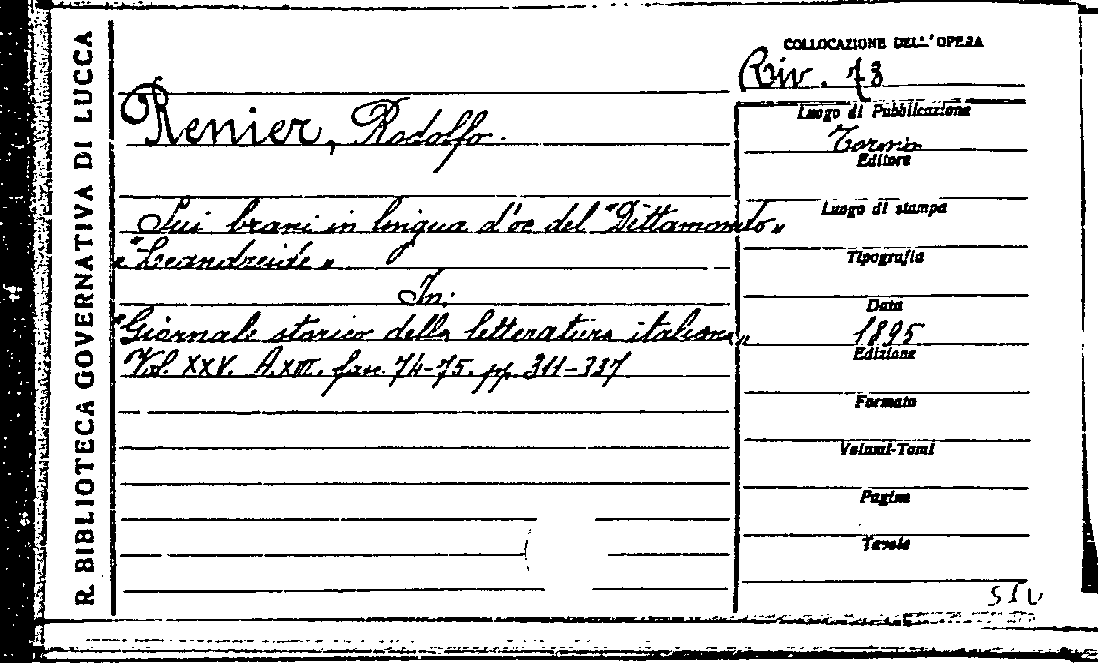 R. BIBLIOTECA GOVERNATIVA DI LUCCA
COLLOCAZIONE DELL'OPERA
Riv. 73
Renier, Rodolfo.
Sui brani in lingua d'oc del "Dittamondo"
e "Leandreide"
In:
"Giornale storico della letteratura italiana"
Vol. XXV. A. XIII. fasc. 74-75. pp. 311-337
Luogo di Pubblicazione
Torino
Editore
Luogo di stampa
Tipografia
Data
1895
Edizione
Formato
Volumi-Tomi
Pagine
Tavole